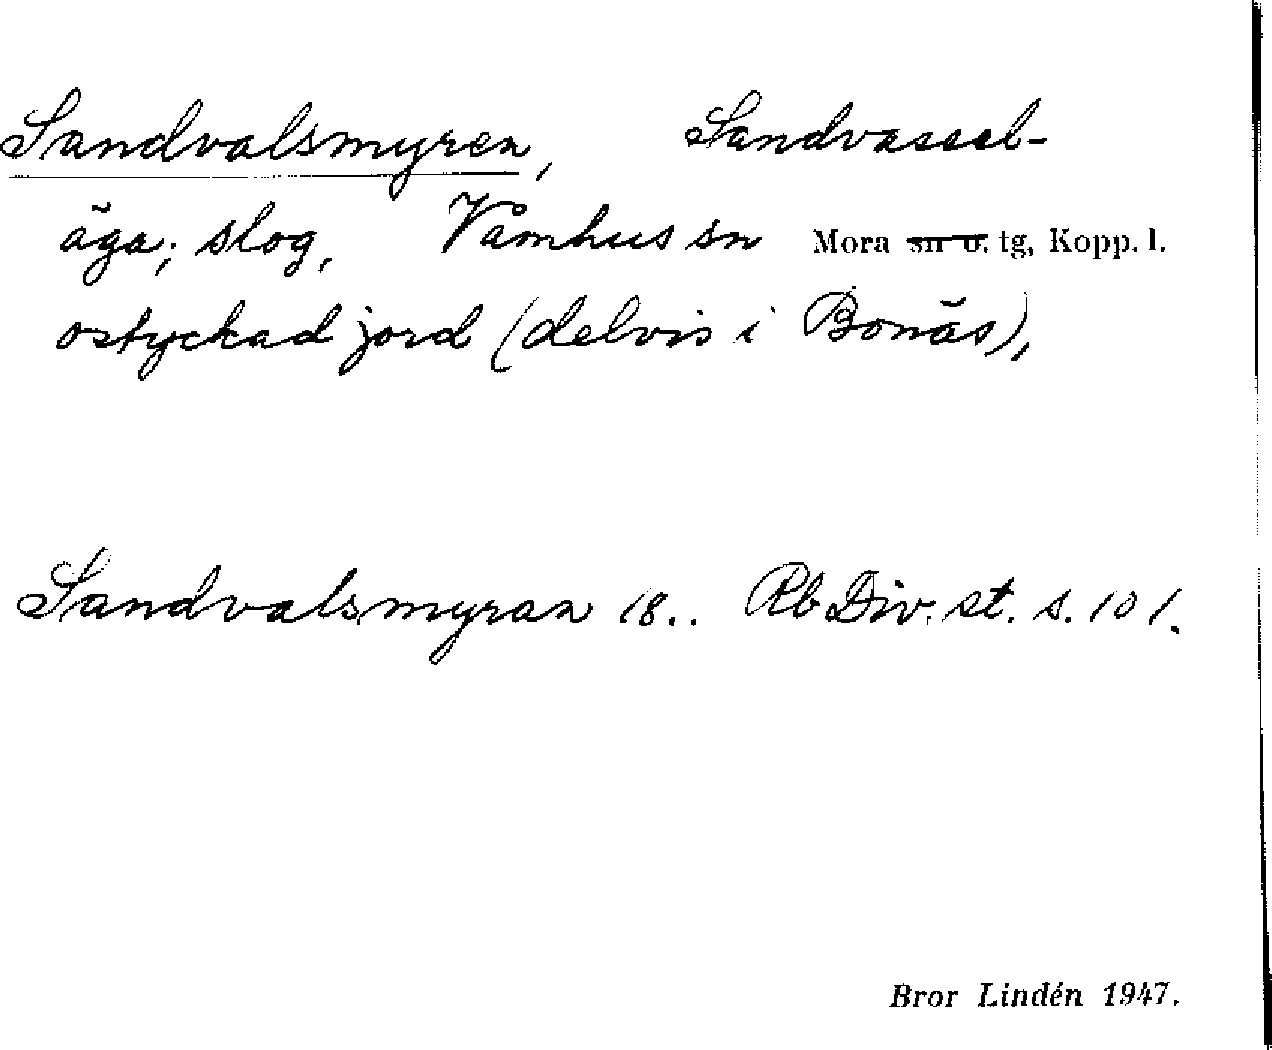 Sandvalsmyren, Sandvassel-
äga; slog, Våmhus sn Mora sn o. tg, Kopp. l.
ostyckad jord (delvis i Bonäs),
Sandvalsmyran 18.. Rb Div. st. s. 101.
Bror Lindén 1947.